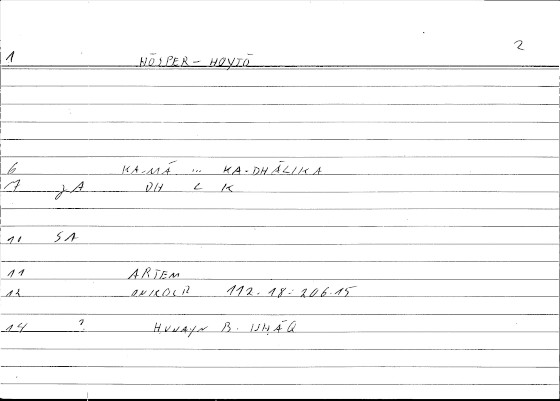 2
1 HŌSPER – HOYTŌ
6 KA-MĀ ... KA-DHĀLIKA
7 jA DH L K
10 SA
11 ARTEM
12 ONIROCR 112.18 = 206.15
14 ? HUNAYN B. ISHĀQ